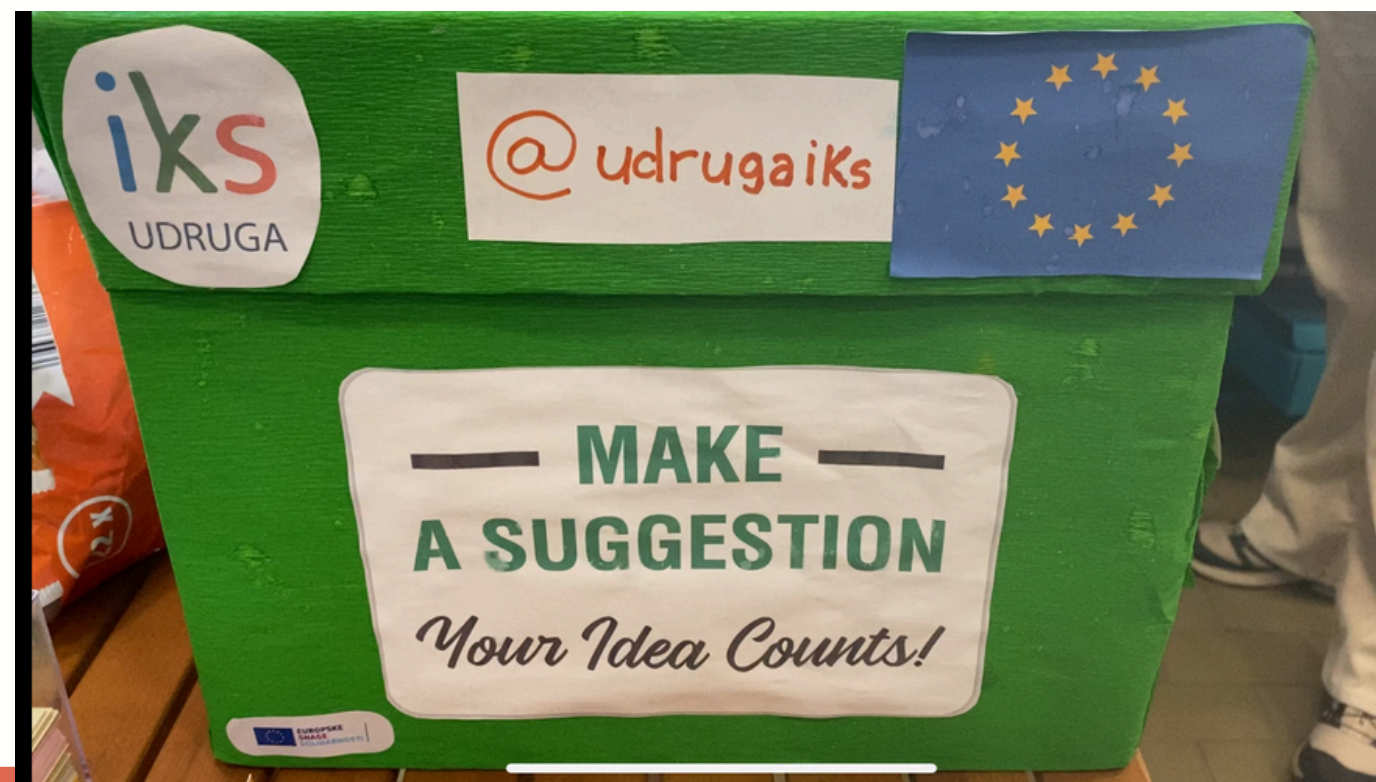 iks
UDRUGA
@udrugaiks
MAKE
A SUGGESTION
Your Idea Counts!
EUROPSKE
SNAGE
SOLIDARNOSTI
12 X